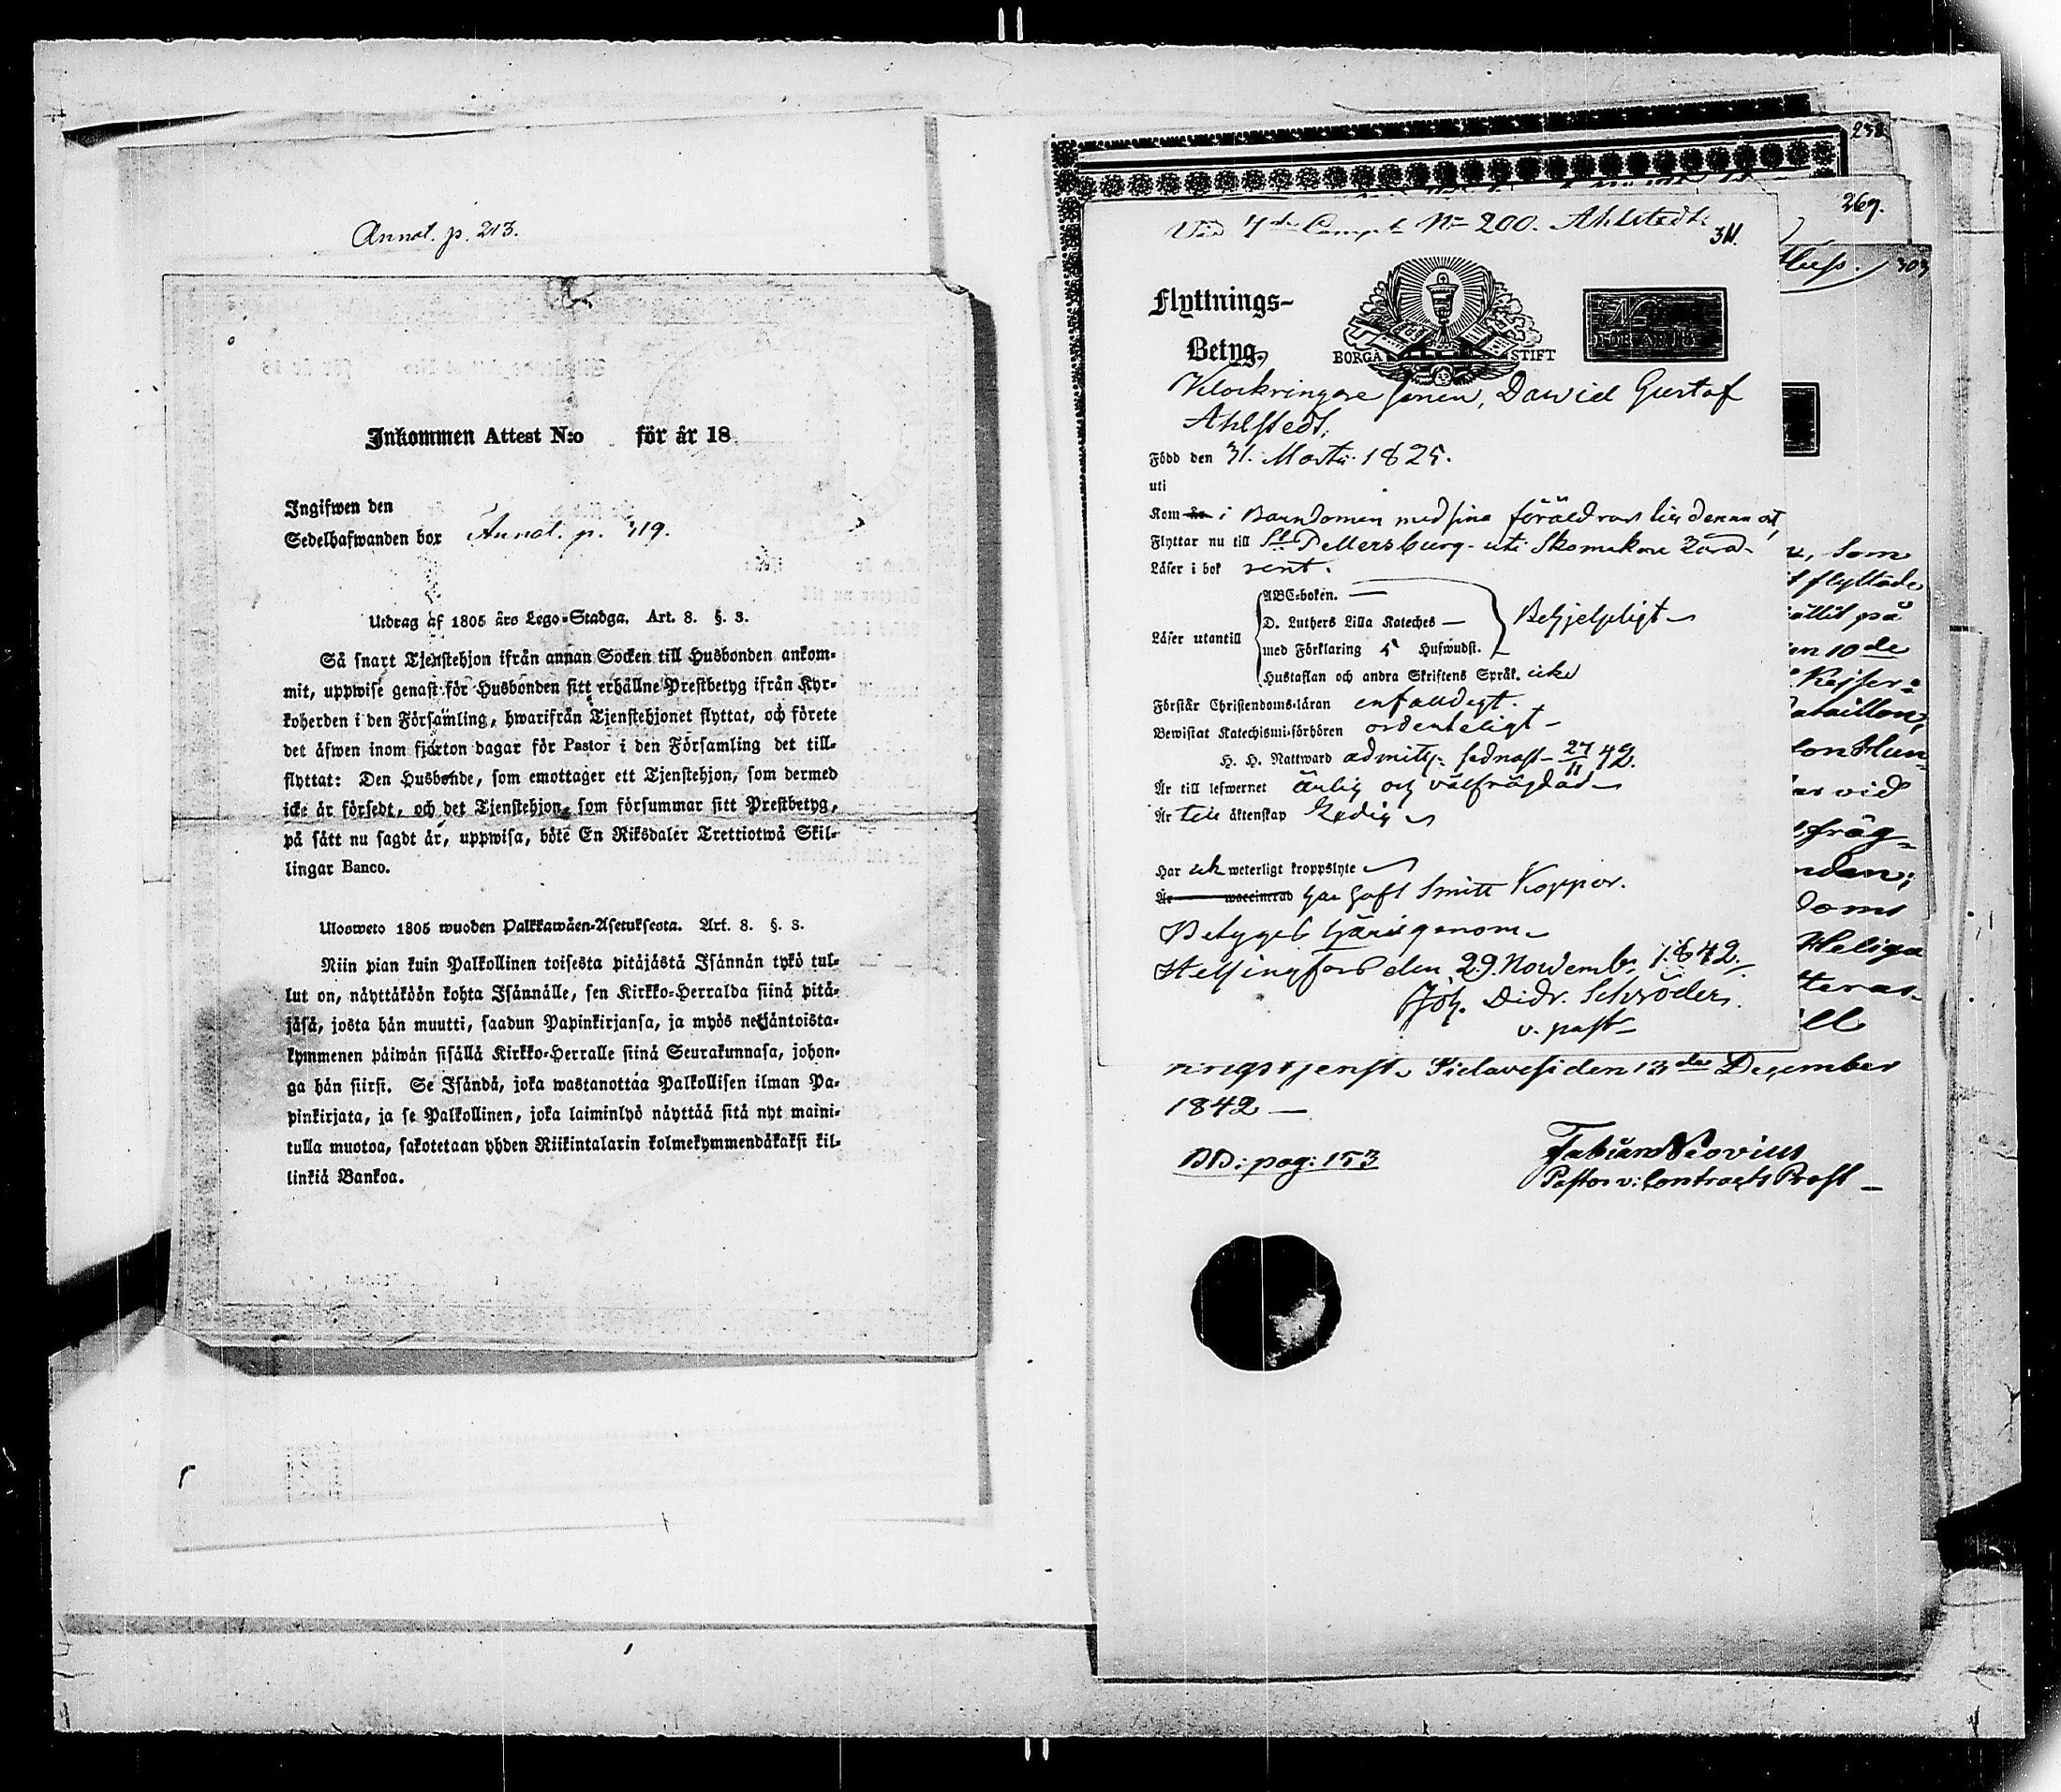 Annot. p. 213.
Inkommen Attest N:o för år 18
Ingifwen den
Sedelhafwanden bor Annot. p. 319.
Utdrag af 1805 års Lego-Stadga. Art. 8. §. 3.
Så snart Tjenstehjon ifrån annan Socken till Husbonden ankom-
mit, uppwise genast för Husbonden sitt erhållne Prestbetyg ifrån Kyr-
koherden i den Församling, hwarifrån Tjenstehjonet flyttat, och förete
det äfwen inom fjorton dagar för Pastor i den Församling det till-
flyttat: Den Husbonde, som emottager ett Tjenstehjon, som dermed
icke är försedt, och det Tjenstehjon, som försummar sitt Prestbetyg,
på sätt nu sagdt är, uppwisa, böte En Riksdaler Trettiotwå Skil-
lingar Banco.
Ulosweto 1805 wuoden Palkkawäen-Asetuksesta. Art. 8. §. 3.
Niin pian kuin Palkollinen toisesta pitäjästä Isännän tykö tul-
lut on, näyttäköön kohta Isännälle, sen Kirkko-Herralda siinä pitä-
jäsä, josta hän muutti, saadun Papinkirjansa, ja myös neljäntoista-
kymmenen päiwän sisällä Kirkko-Herralle siinä Seurakunnasa, johon-
ga hän siirsi. Se Isändä, joka wastanottaa Palkollisen ilman Pa-
pinkirjata, ja se Palkollinen, joka laiminlyö näyttää sitä nyt maini-
tulla muotoa, sakotetaan yhden Riikintalarin kolmekymmendäkaksi kil-
linkiä Bankoa.
238
269.
303
311.
N° 200. Ahlstedt.
Flyttnings-
Betyg.
BORGÅ STIFT
Klockringare sonen, Dawid Gustaf
Ahlstedt.
Född den 31. Martii 1825.
uti
Kom år i Barndomen med sina föräldrar hit denna ort,
Flyttar nu till St Pettersburg uti Skomakare Lära
Läser i bok rent.
Läser utantill
ABC-boken. —
D. Luthers Lilla Kateches —
med Förklaring 5 Hufwudst.
Behjelpligt
Hustaflan och andra Skriftens Språk. icke
Förstår Christendoms-läran enfaldigt.
Bewistat Katechismi-förhören ordenteligt —
H. H. Nattward admitt. sednast 27/11 42.
Är till lefwernet ärlig och välfrägdad
Är till äktenskap Ledig
Har ick weterligt kroppslyte
Är waccinerad har haft Smitt Koppor.
Betygas härigenom
Helsingfors den 29. Novemb. 1842.
Joh. Didr. Schröder.
v. past
som
flyttade
på
10de
vid
Heliga
den 13de December
1842 —
BB: pag: 153
Fabian Neovius
Pastor v: Contracts Prost —